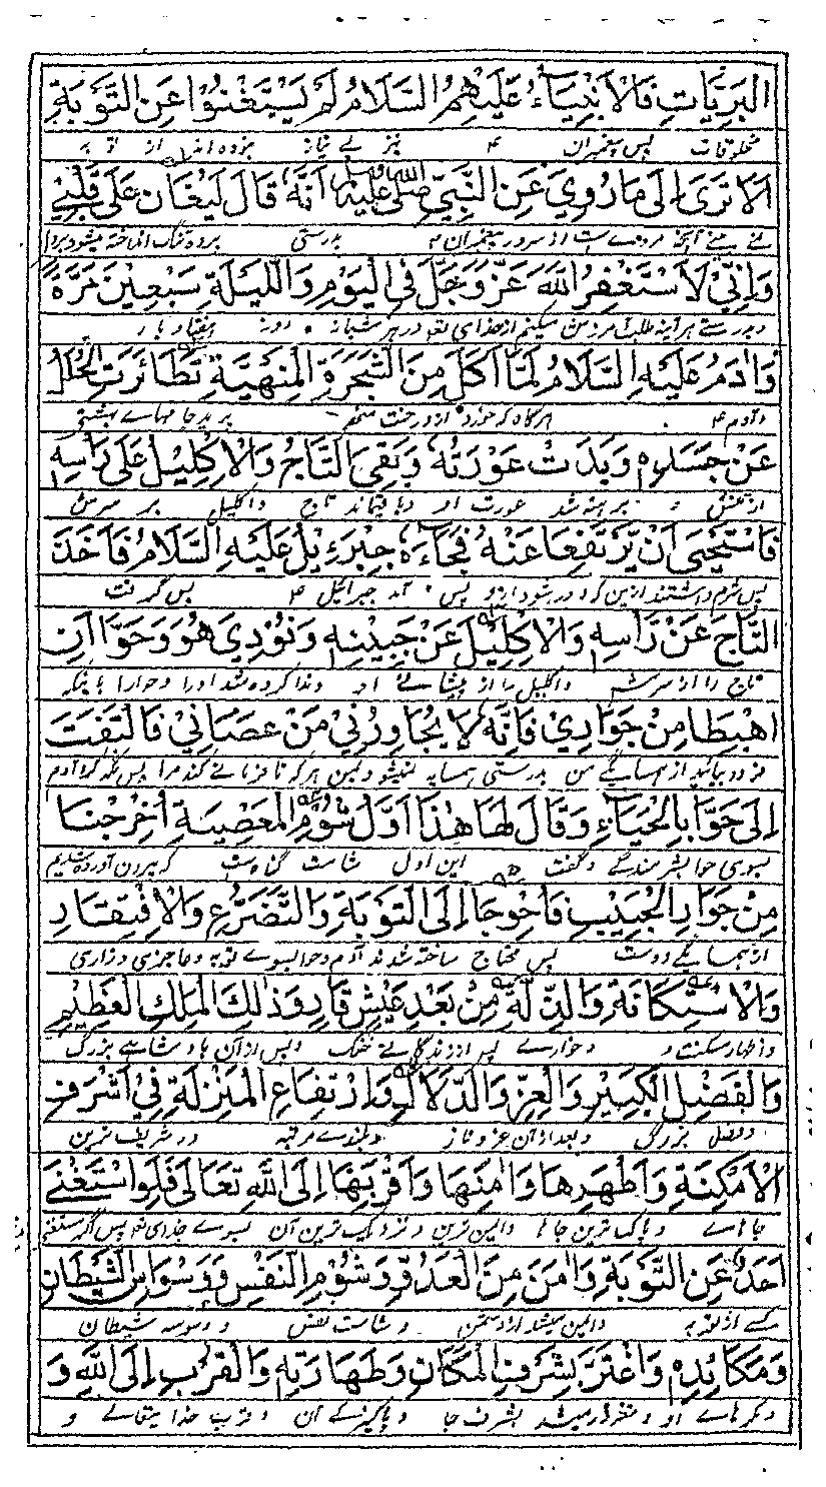 البَرِيَّاتِ فَالْاَنْبِيَآءُ عَلَيْهِمُ السَّلَامُ لَمْ يَسْتَغْنُوْا عَنِ التَّوْبَةِ
مخلوقات پس پیغمبران ۴ نیز بے نیاز نبوده اند از توبه
اَلَا تَرٰى اِلٰى مَا رُوِيَ عَنِ النَّبِيِّ صلى الله عليه وسلم اَنَّهُ قَالَ لَيُغَانُ عَلٰى قَلْبِيْ
نے بینے آنچه مروے ست از سرور پیغمبران بدرستی پرده تنگ انداخته میشود بر دل
وَاِنِّيْ لَاَسْتَغْفِرُ اللّٰهَ عَزَّ وَجَلَّ فِى الْيَوْمِ وَاللَّيْلَةِ سَبْعِيْنَ مَرَّةً
وبدرستے هر آینه طلب آمرزش میکنم از خدای تع در هر شبانه روز هفتاد بار
وَاٰدَمُ عَلَيْهِ السَّلَامُ لَمَّا اَكَلَ مِنَ الشَّجَرَةِ الْمَنْهِيَّةِ تَطَائَرَتِ الْحُلَلُ
وآدم ۴ هرگاه که خورد از درخت پرید جامهاے بهشتی
عَنْ جَسَدِهٖ وَبَدَتْ عَوْرَتُهُ وَبَقِيَ التَّاجُ وَالْاِكْلِيْلُ عَلٰى رَاْسِهٖ
از تنش و برهنه شد عورت او و باقیماند تاج واکلیل بر سرش
فَاسْتَحْيٰى اَنْ يَّرْتَفِعَا عَنْهُ فَجَآءَهُ جِبْرَءِيْلُ عَلَيْهِ السَّلَامُ فَاَخَذَ
پس شرم داشتند ازین که دور شود ازو پس آمد جبرائیل ۴ پس گرفت
التَّاجَ عَنْ رَاْسِهٖ وَالْاِكْلِيْلَ عَنْ جَبِيْنِهٖ وَنُوْدِيَ هُوَ وَحَوَّا اَنِ
تاج را از سرش واکلیل را از پیشانے او وندا کرده شد اورا وحوارا باینکه
اهْبِطَا مِنْ جَوَارِيْ فَاِنَّهُ لَا يُجَاوِرُنِيْ مَنْ عَصَانِيْ فَالْتَفَتَ
فرود بیائید از همسایگے من بدرستی همسایه نمیشود بمن هر که نافرمانے کند مرا پس نگه کرد آدم
اِلٰى حَوَّا بِالْحَيَآءِ وَقَالَ لَهَا هٰذَا اَوَّلُ شُوْمِ الْمَعْصِيَةِ اُخْرِجْنَا
بسوی حوا بشرمندگے وگفت این اول شامت گناهست که بیرون آورده شدیم
مِنْ جَوَارِ الْحَبِيْبِ فَاحْوِجَا اِلَى التَّوْبَةِ وَالتَّضَرُّعِ وَالْاِفْتِقَارِ
از همسایگے دوست پس محتاج ساخته شدند آدم وحوا بسوے توبه وعاجزی وزاری
وَالْاِسْتِكَانَةِ وَالذِّلَّةِ مِنْ بَعْدِ عَيْشٍ قَارٍ وَذٰلِكَ الْمَلِكِ الْعَظِيْمِ
واظهار مسکنت و وخوارے پس از زندگانے خنک وپس از آن بادشاهے بزرگ
وَالْفَضْلِ الْكَبِيْرِ وَالْعِزِّ وَالدَّلَالِ وَارْتِفَاعِ الْمَنْزِلَةِ فِيْ اَشْرَفِ
وفضل بزرگ وبعد ازآن عز و ناز وبلندے مرتبه در شریف ترین
الْاَمْكِنَةِ وَاَطْهَرِهَا وَاٰمَنِهَا وَاَقْرَبِهَا اِلَى اللّٰهِ تَعَالٰى فَلَوِ اسْتَغْنٰى
جاهاے وپاک ترین جاها وایمن ترین ونزدیک ترین آن بسوے خدای تع پس اگر مستغنی
اَحَدٌ عَنِ التَّوْبَةِ وَاٰمَنَ مِنَ الْعَدُوِّ وَشُوْمِ النَّفْسِ وَوَسْوَاسِ الشَّيْطَانِ
کسے از توبه وایمن میشد از دشمن وشامت نفس و وسوسه شیطان
وَمَكَائِدِهٖ وَاغْتَرَّ بِشَرَفِ الْمَكَانِ وَطَهَارَتِهٖ وَالْقُرْبِ اِلَى اللّٰهِ وَ
ومکرهاے او و میشد بشرف جا وپاکیزگے آن وقرب خدا یتعالے و